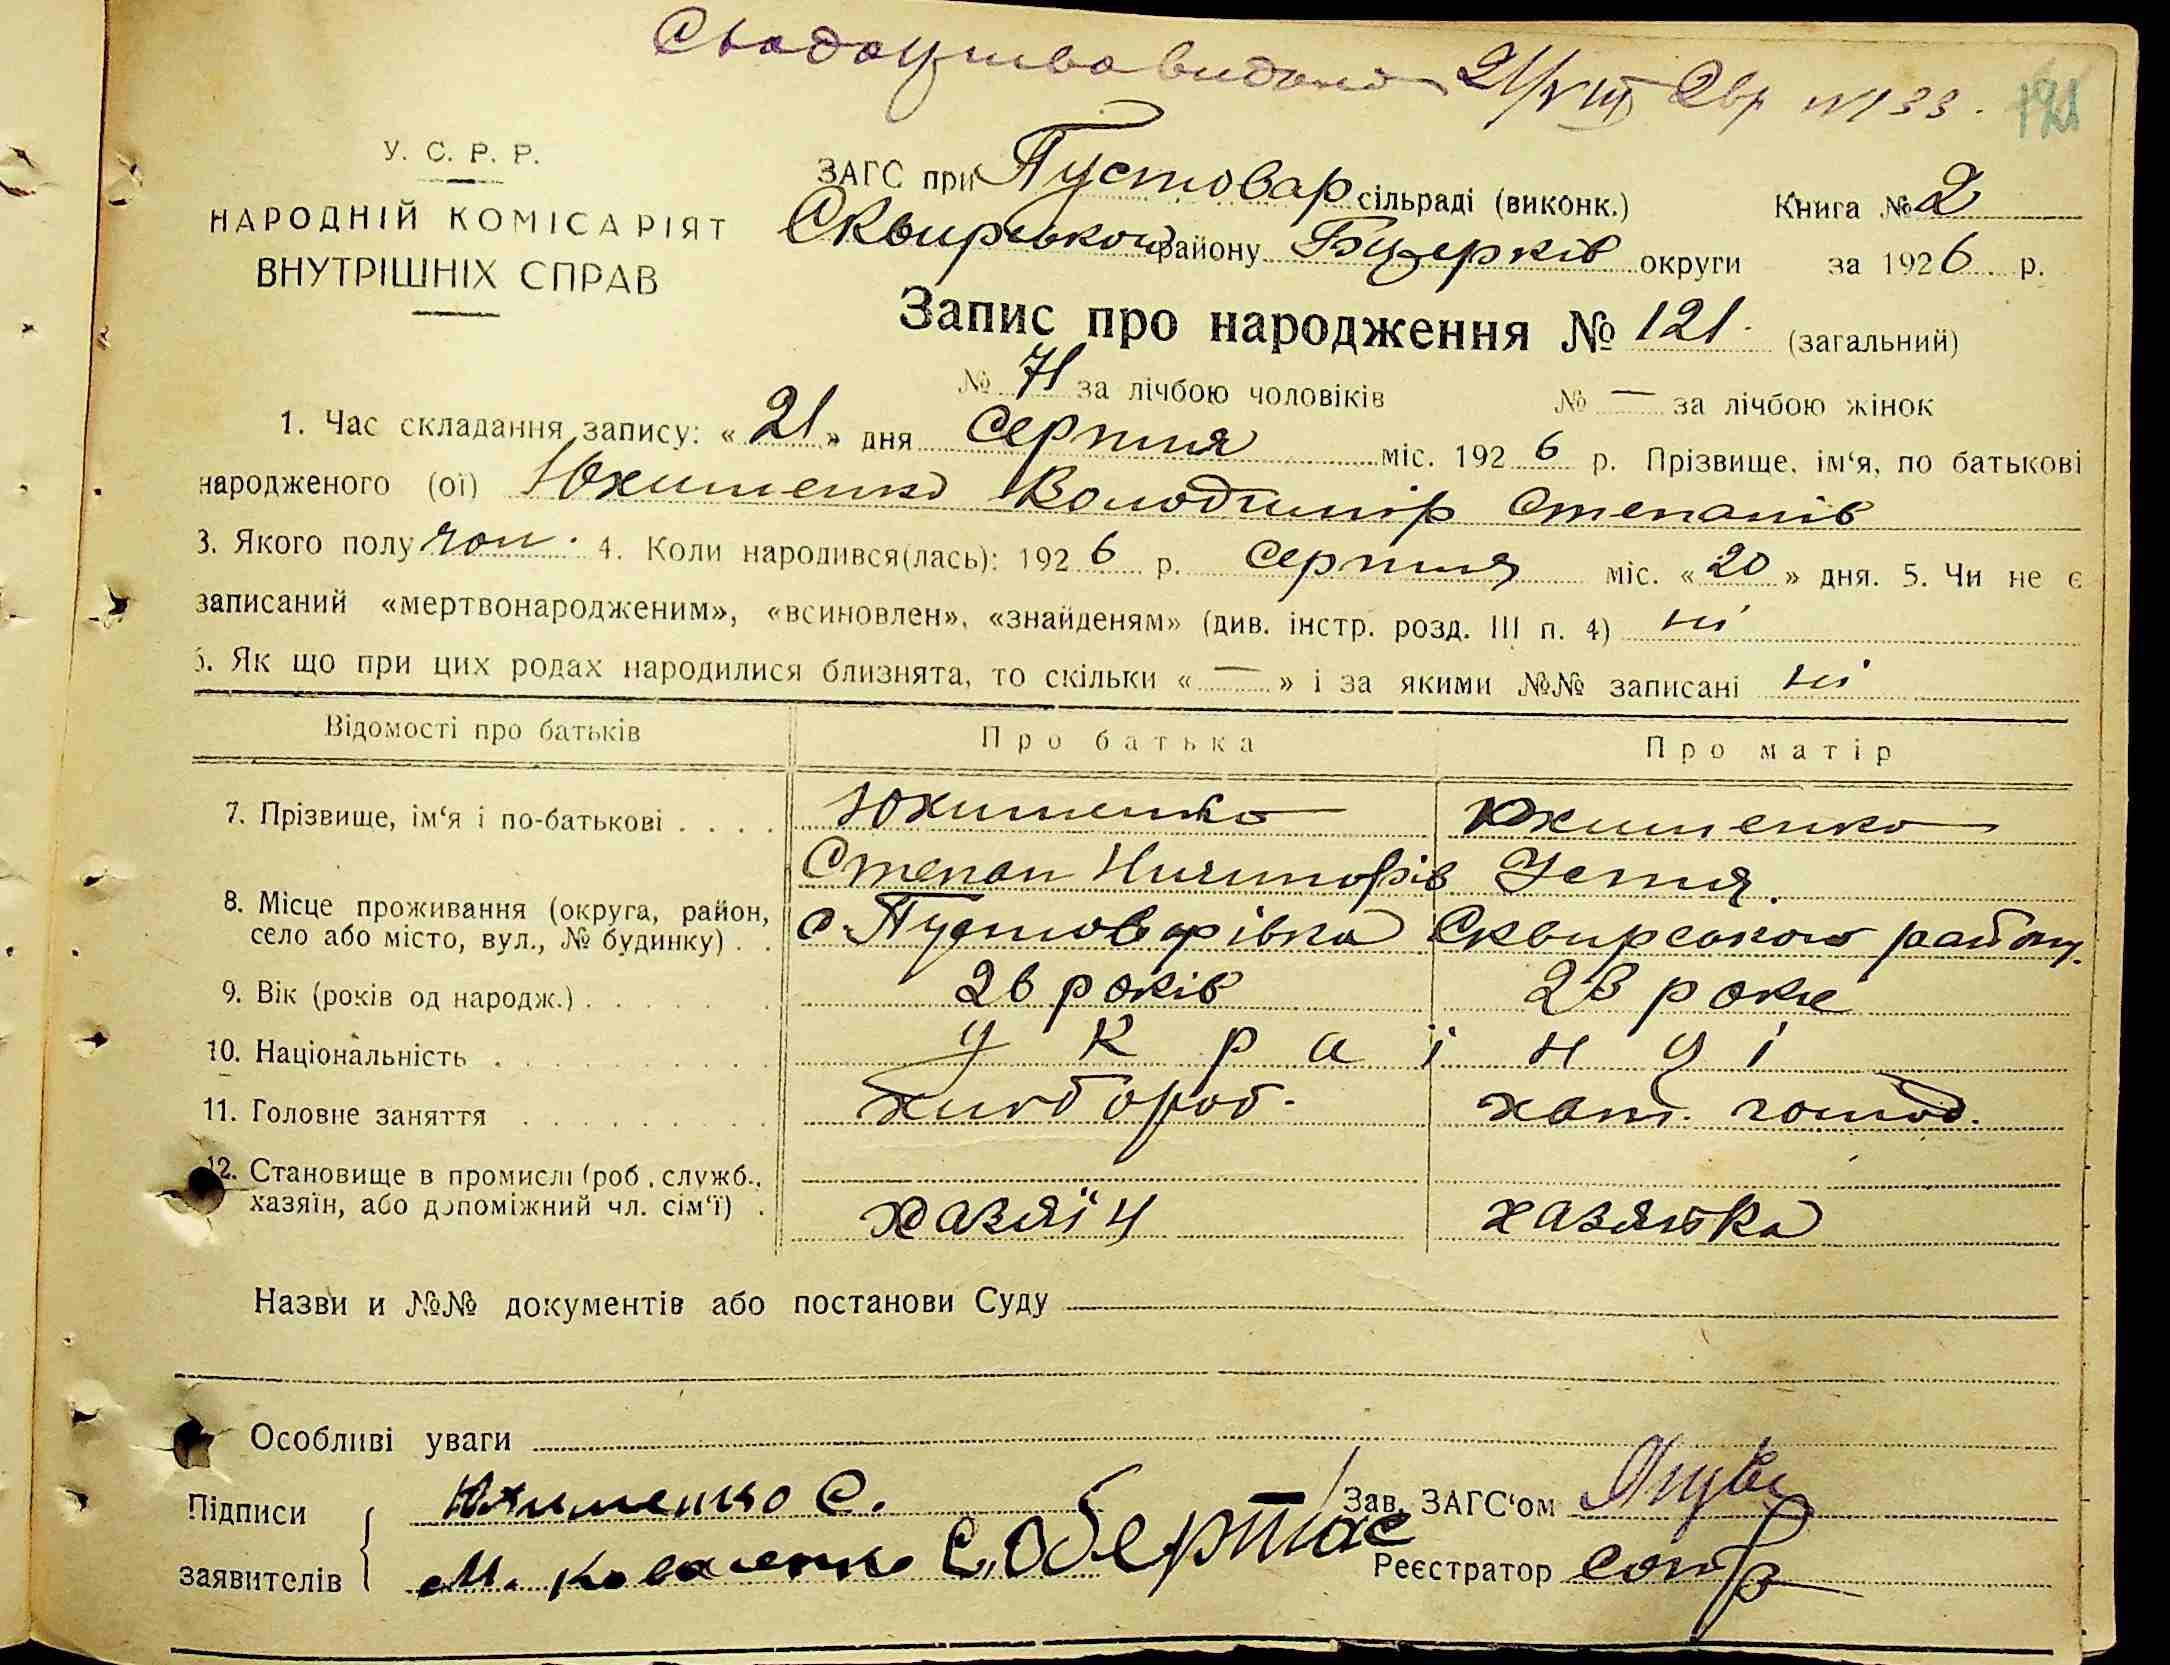 Свадоцтво видано 21/VIII 26р №133.
121
У. С. Р. Р.
НАРОДНІЙ КОМІСАРІЯТ
ВНУТРІШНІХ СПРАВ
ЗАГС при Пустовар сільраді (виконк.) Книга № 2
Сквирського району Біцерків округи за 1926 р.
Запис про народження № 121. (загальний)
№ 71 за лічбою чоловіків № — за лічбою жінок
1. Час складання запису: «21» дня серпня міс. 1926 р. Прізвище, ім‘я, по батькові
народженого (ої) Юхименко Володимір Степанів
3. Якого полу чол. 4. Коли народився(лась): 1926 р. серпня міс. «20» дня. 5. Чи не є
записаний «мертвонародженим», «всиновлен», «знайденям» (див. інстр. розд. III п. 4) ні
6. Як що при цих родах народилися близнята, то скільки «—» і за якими №№ записані ні
Відомості про батьків Про батька Про матір
7. Прізвище, ім‘я і по-батькові . . . . Юхименко Юхименко
Степан Ничипорів Устя.
8. Місце проживання (округа, район, с. Пустоварівка Сквирського району.
село або місто, вул., № будинку) . .
9. Вік (років од народж.) . . . . . 26 років 23 роки
10. Національність . . . . . . . . українці
11. Головне заняття . . . . . . . . хлібороб. хат. господ.
12. Становище в промислі (роб., служб.,
хазяїн, або допоміжний чл. сім‘ї) . хазяїн хазяйка
Назви и №№ документів або постанови Суду
Особливі уваги
Підписи Юхименко С. Зав. ЗАГС‘ом
заявителів М. Коваленко С. Обертас Реєстратор